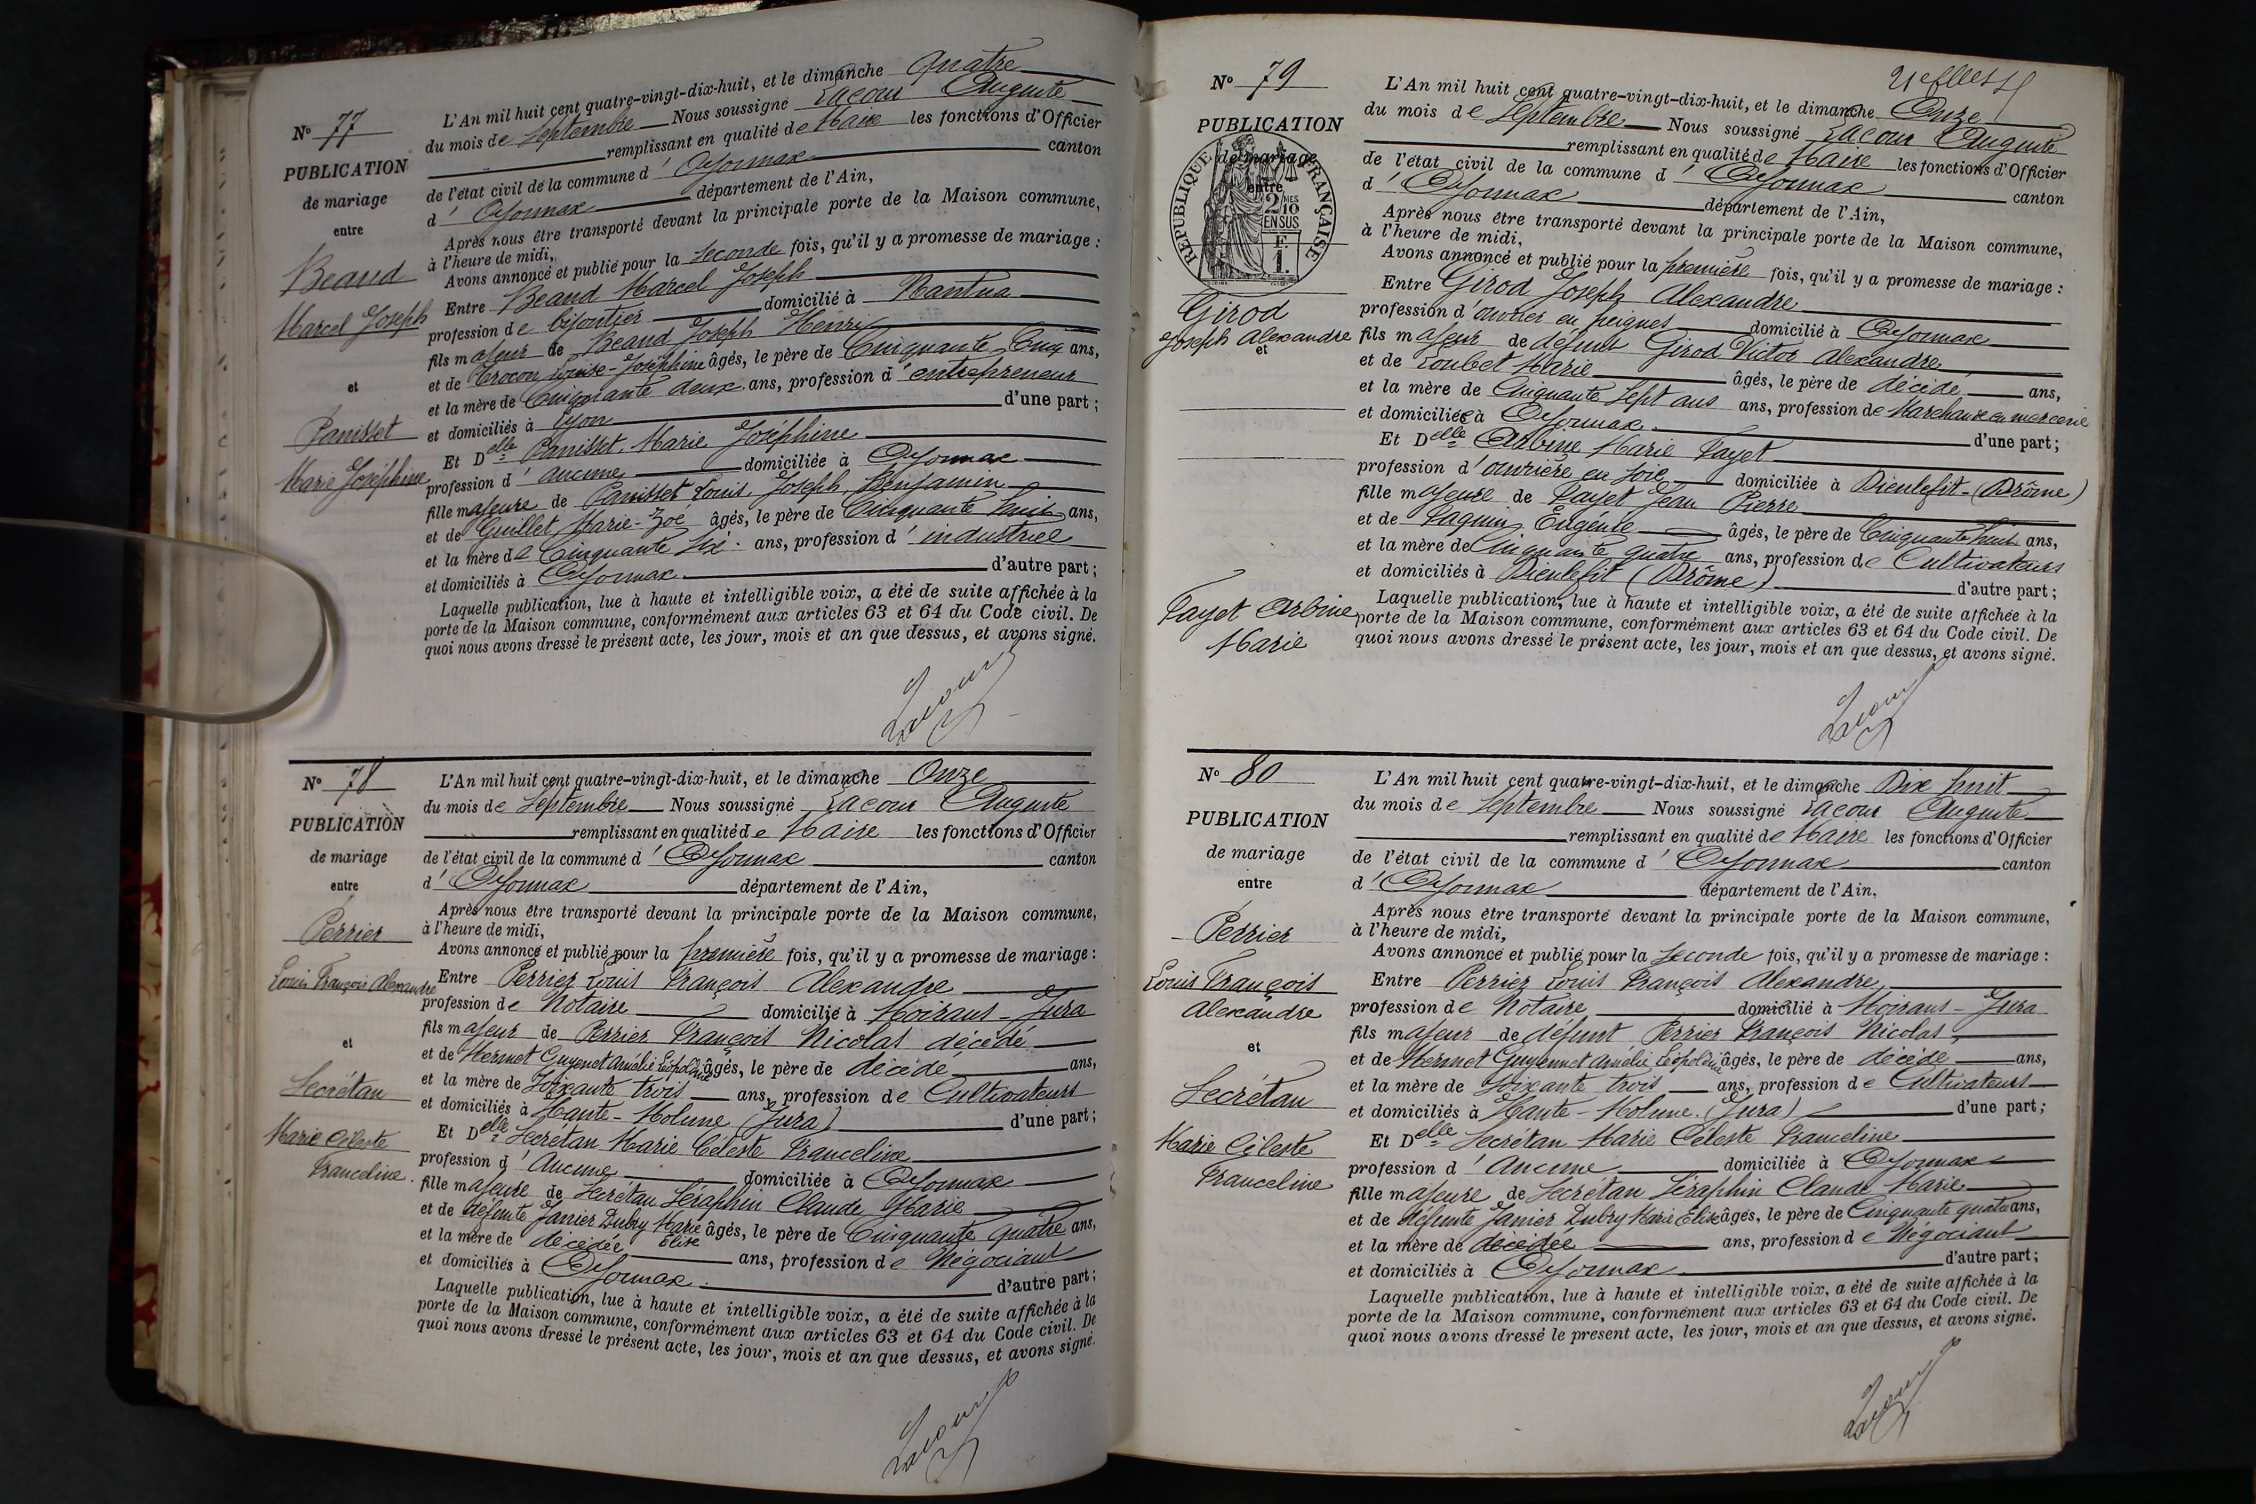 N° 77
PUBLICATION
de mariage
entre
Beaud
Marcel Joseph
et
Panisset
Marie Joséphine
L'An mil huit cent quatre-vingt-dix-huit, et le dimanche Quatre
du mois de Septembre Nous soussigné Lacour Auguste
remplissant en qualité de Maire les fonctions d'Officier
de l'état civil de la commune d' Oyonnax canton
d' Oyonnax département de l'Ain,
Après nous être transporté devant la principale porte de la Maison commune,
à l'heure de midi,
Avons annoncé et publié pour la Seconde fois, qu'il y a promesse de mariage :
Entre Beaud Marcel Joseph
profession de bijoutier domicilié à Nantua
fils majeur de Beaud Joseph Henri
et de Louise-Joséphine âgés, le père de Cinquante Cinq ans,
et la mère de Cinquante deux ans, profession d' entrepreneur
et domiciliés à Lyon d'une part ;
Et Delle Panisset Marie Joséphine
profession d' aucune domiciliée à Oyonnax
fille majeure de Panisset Louis Joseph Benjamin
et de Guillet Marie-Zoé âgés, le père de Cinquante huit ans,
et la mère de Cinquante Six ans, profession d' industriel
et domiciliés à Oyonnax d'autre part ;
Laquelle publication, lue à haute et intelligible voix, a été de suite affichée à la
porte de la Maison commune, conformément aux articles 63 et 64 du Code civil. De
quoi nous avons dressé le présent acte, les jour, mois et an que dessus, et avons signé.
Lacour
N° 78
PUBLICATION
de mariage
entre
Perrier
Louis François Alexandre
et
Secrétan
Marie Céleste
Franceline
L'An mil huit cent quatre-vingt-dix-huit, et le dimanche Onze
du mois de Septembre Nous soussigné Lacour Auguste
remplissant en qualité de Maire les fonctions d'Officier
de l'état civil de la commune d' Oyonnax canton
d' Oyonnax département de l'Ain,
Après nous être transporté devant la principale porte de la Maison commune,
à l'heure de midi,
Avons annoncé et publié pour la première fois, qu'il y a promesse de mariage :
Entre Perrier Louis François Alexandre
profession de Notaire domicilié à Moirans - Jura
fils majeur de Perrier François Nicolas décédé
et de Mermet Guyennet Amélie Léopoldine âgés, le père de décédé ans,
et la mère de Soixante trois ans, profession de Cultivateurs
et domiciliés à Haute-Molune (Jura) d'une part ;
Et Delle Secrétan Marie Céleste Franceline
profession d' Aucune domiciliée à Oyonnax
fille majeure de Secrétan Séraphin Claude Marie
et de défunte Janier Dubry Marie Elise âgés, le père de Cinquante quatre ans,
et la mère de décédée ans, profession de Négociant
et domiciliés à Oyonnax d'autre part ;
Laquelle publication, lue à haute et intelligible voix, a été de suite affichée à la
porte de la Maison commune, conformément aux articles 63 et 64 du Code civil. De
quoi nous avons dressé le présent acte, les jour, mois et an que dessus, et avons signé.
Lacour
N° 79
PUBLICATION
de mariage
entre
RÉPUBLIQUE FRANÇAISE
2 MES
10
EN SUS
F.
1.
Girod
Joseph Alexandre
et
Payet Arbine
Marie
L'An mil huit cent quatre-vingt-dix-huit, et le dimanche Onze
du mois de Septembre Nous soussigné Lacour Auguste
remplissant en qualité de Maire les fonctions d'Officier
de l'état civil de la commune d' Oyonnax canton
d' Oyonnax département de l'Ain,
Après nous être transporté devant la principale porte de la Maison commune,
à l'heure de midi,
Avons annoncé et publié pour la première fois, qu'il y a promesse de mariage :
Entre Girod Joseph Alexandre
profession d'ouvrier en peignes domicilié à Oyonnax
fils majeur de défunt Girod Victor Alexandre
et de Loubet Marie âgés, le père de décédé ans,
et la mère de Cinquante Sept ans ans, profession de Marchande en mercerie
et domiciliée à Oyonnax d'une part ;
Et Delle Arbine Marie Payet
profession d'ouvrière en soie domiciliée à Dieulefit-(Drôme)
fille majeure de Payet Jean Pierre
et de Eugénie âgés, le père de Cinquante huit ans,
et la mère de Cinquante quatre ans, profession de Cultivateurs
et domiciliés à Dieulefit (Drôme) d'autre part ;
Laquelle publication, lue à haute et intelligible voix, a été de suite affichée à la
porte de la Maison commune, conformément aux articles 63 et 64 du Code civil. De
quoi nous avons dressé le présent acte, les jour, mois et an que dessus, et avons signé.
Lacour
N° 80
PUBLICATION
de mariage
entre
Perrier
Louis François
Alexandre
et
Secrétan
Marie Céleste
Franceline
L'An mil huit cent quatre-vingt-dix-huit, et le dimanche Dix huit
du mois de Septembre Nous soussigné Lacour Auguste
remplissant en qualité de Maire les fonctions d'Officier
de l'état civil de la commune d' Oyonnax canton
d' Oyonnax département de l'Ain.
Après nous être transporté devant la principale porte de la Maison commune,
à l'heure de midi,
Avons annoncé et publié pour la Seconde fois, qu'il y a promesse de mariage :
Entre Perrier Louis François Alexandre
profession de Notaire domicilié à Moirans - Jura
fils majeur de défunt Perrier François Nicolas
et de Mermet Guyennet Amélie Léopoldine âgés, le père de décédé ans,
et la mère de Soixante trois ans, profession de Cultivateurs
et domiciliés à Haute-Molune (Jura) d'une part ;
Et Delle Secrétan Marie Céleste Franceline
profession d' Aucune domiciliée à Oyonnax
fille majeure de Secrétan Séraphin Claude Marie
et de défunte Janier Dubry Marie Elise âgés, le père de Cinquante quatre ans,
et la mère de décédée ans, profession de Négociant
et domiciliés à Oyonnax d'autre part ;
Laquelle publication, lue à haute et intelligible voix, a été de suite affichée à la
porte de la Maison commune, conformément aux articles 63 et 64 du Code civil. De
quoi nous avons dressé le présent acte, les jour, mois et an que dessus, et avons signé.
Lacour